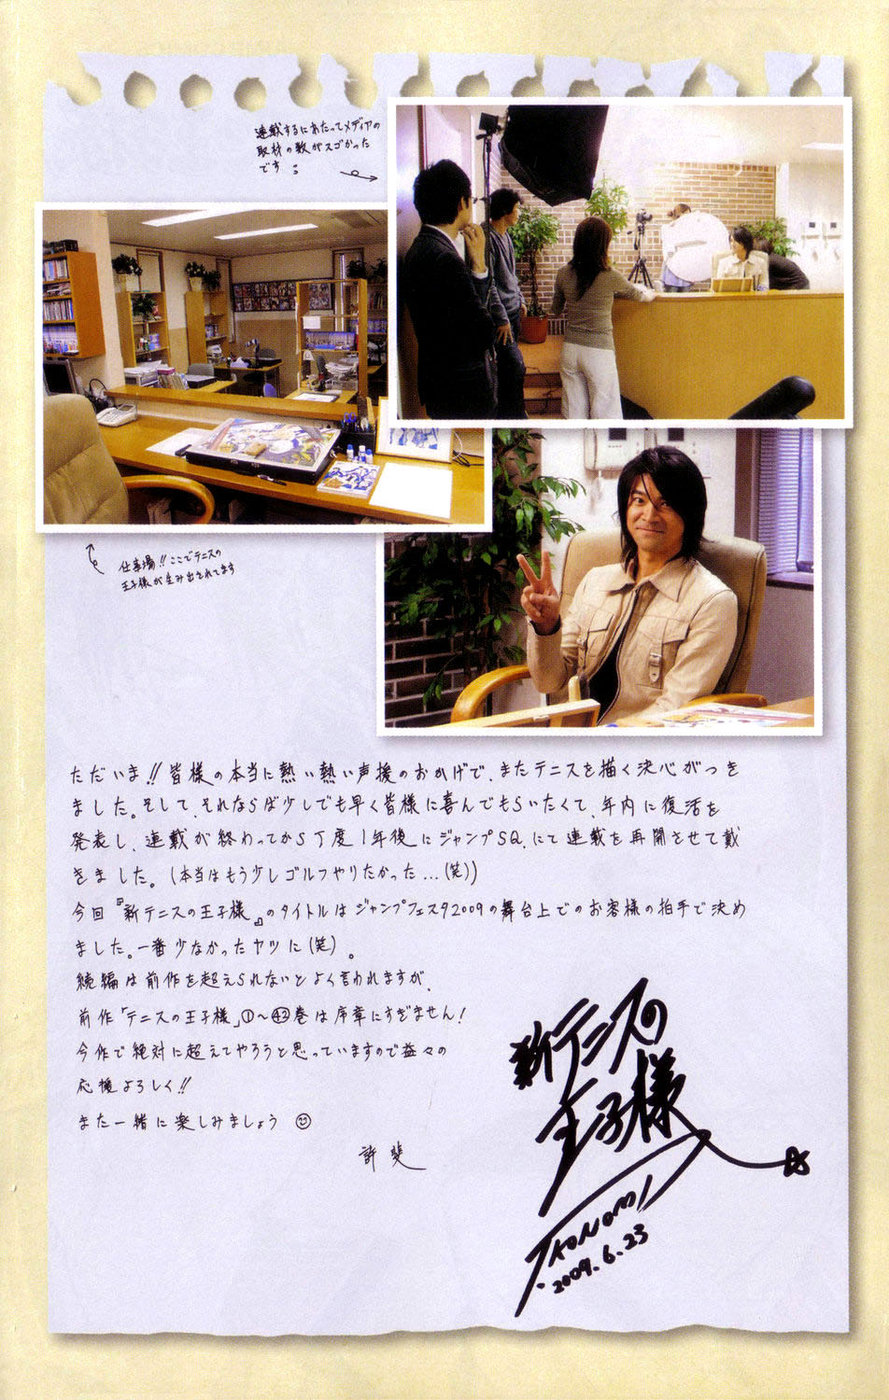 連載するにあたってメディアの
取材の数がスゴかった
です!!
仕事場!!ここでテニスの
王子様が生み出されてます
ただいま!!皆様の本当に熱い熱い声援のおかげで、またテニスを描く決心がつき
ました。そして、それならば少しでも早く皆様に喜んでもらいたくて、年内に復活を
発表し、連載が終わってから丁度1年後にジャンプSQ.にて連載を再開させて戴
きました。(本当はもう少しゴルフやりたかった…(笑))
今回『新テニスの王子様』のタイトルはジャンプフェスタ2009の舞台上でのお客様の拍手で決め
ました。一番少なかったヤツに(笑)。
続編は前作を超えられないとよく言われますが、
前作「テニスの王子様」①〜㊷巻は序章にすぎません!
今作で絶対に超えてやろうと思っていますので益々の
応援よろしく!!
また一緒に楽しみましょう☺
許斐
新テニスの
王子様
T.KONOMI
2009.6.23